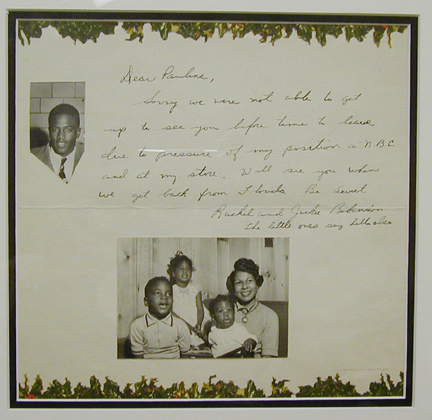 Dear Pauline,
Sorry we were not able to get
up to see you before time to leave
due to pressure of my position a NBC
and at my store. Will see you when
we get back from Florida Be sweet
Rachel and Jackie Robinson
The little ones say hello also